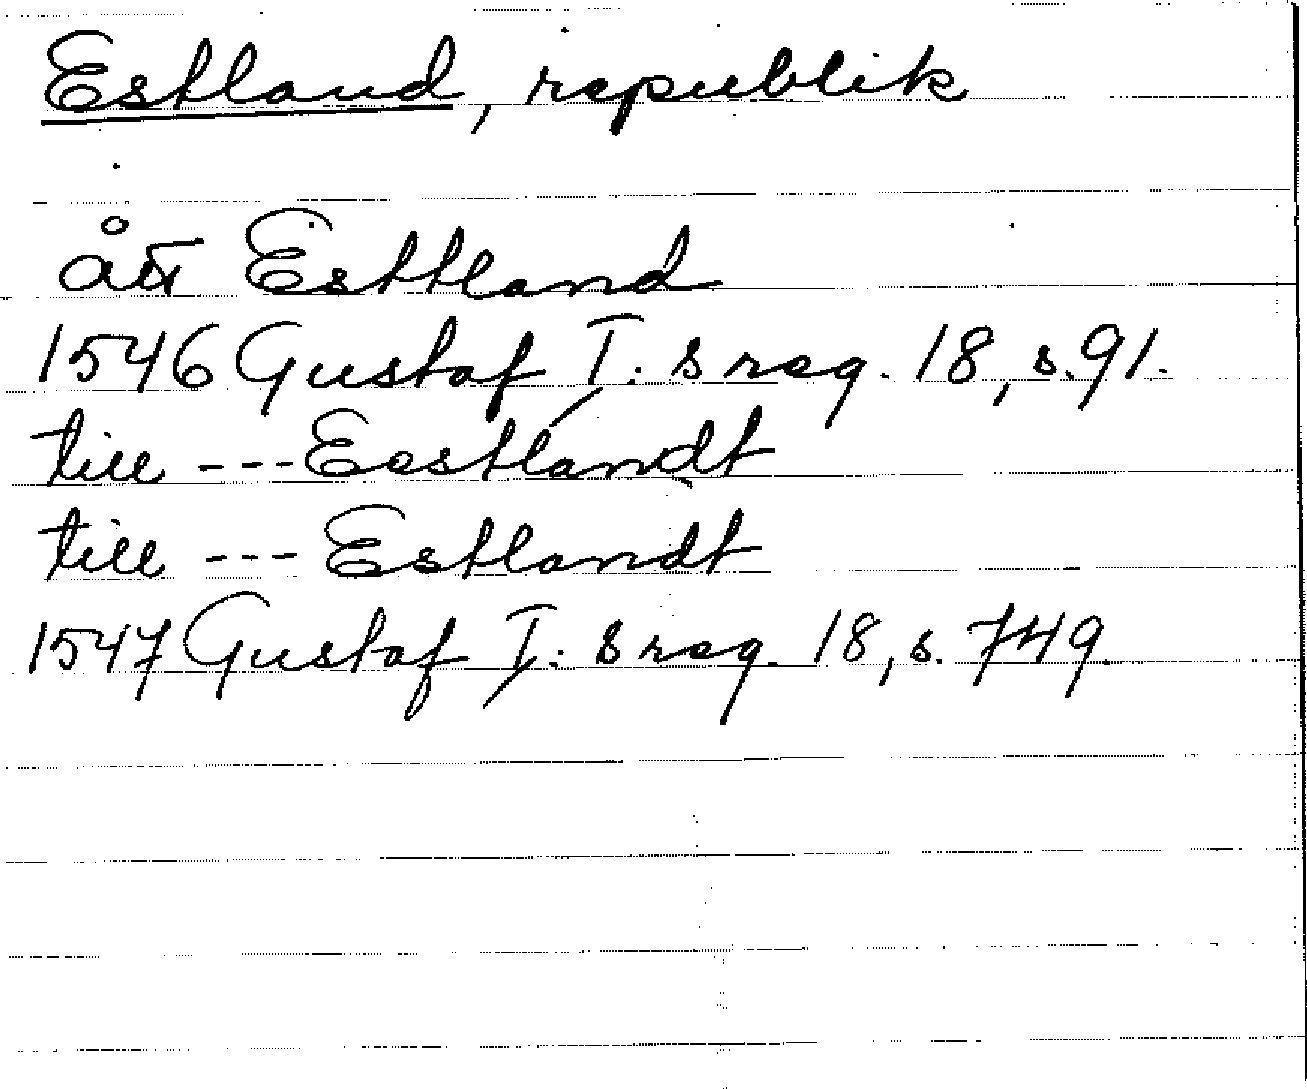 Estland, republik
ått Esttland
1546 Gustaf I:s reg. 18, s. 91.
till --- Eestlandt
till --- Estlandt
1547 Gustaf I:s reg. 18, s. 749.